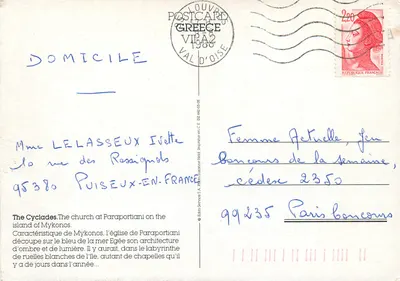 POSTCARD
GREECE
VIBA2
LOUVRES
1986
VAL D'OISE
2,20
REPUBLIQUE FRANÇAISE
DOMICILE
Mme LELASSEUX Ivette
10 rue des Rossignols
95380 PUISEUX-EN-FRANCE
Femme Actuelle, Jeu
Concours de la semaine,
cédex 2350
99235 Paris Concours
The Cyclades. The church at Paraportiani on the
island of Mykonos.
Caractéristique de Mykonos, l'église de Paraportiani
découpe sur le bleu de la mer Egée son architecture
d'ombre et de lumière. Il y aurait, dans le labyrinthe
de ruelles blanches de l'île, autant de chapelles qu'il
y a de jours dans l'année...